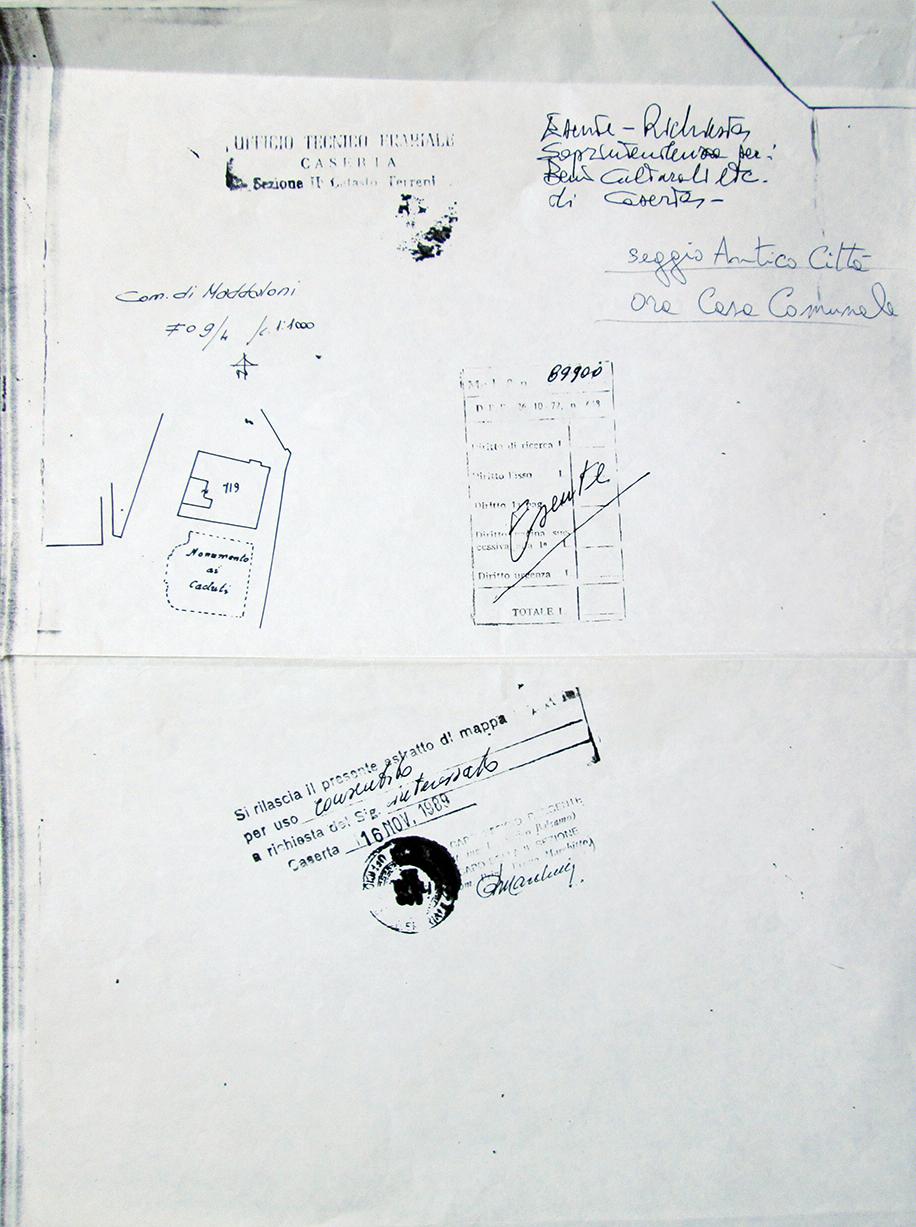 UFFICIO TECNICO ERARIALE
CASERTA
Sezione IIª Catasto Terreni
Esente - Richiesta
Soprintendenza per i
Beni Culturali etc.
di Caserta -
seggio Antico Città
ora Casa Comunale
Com. di Maddaloni
F o 9/4 /c. 1:1000
N
719
Monumento
ai
Caduti
Mod. 8 n. 89900
D.P.R. 26-10-72, n. 648
Diritto di ricerca L.
Diritto fisso L.
Diritto 1ª pag.
Diritto pagina suc
cessiva alla 1ª L.
Diritto urgenza L.
TOTALE L.
Esente
Si rilascia il presente estratto di mappa
per uso consentito
a richiesta del Sig. interessato
Caserta 16 NOV. 1989
CAPO SEZIONE